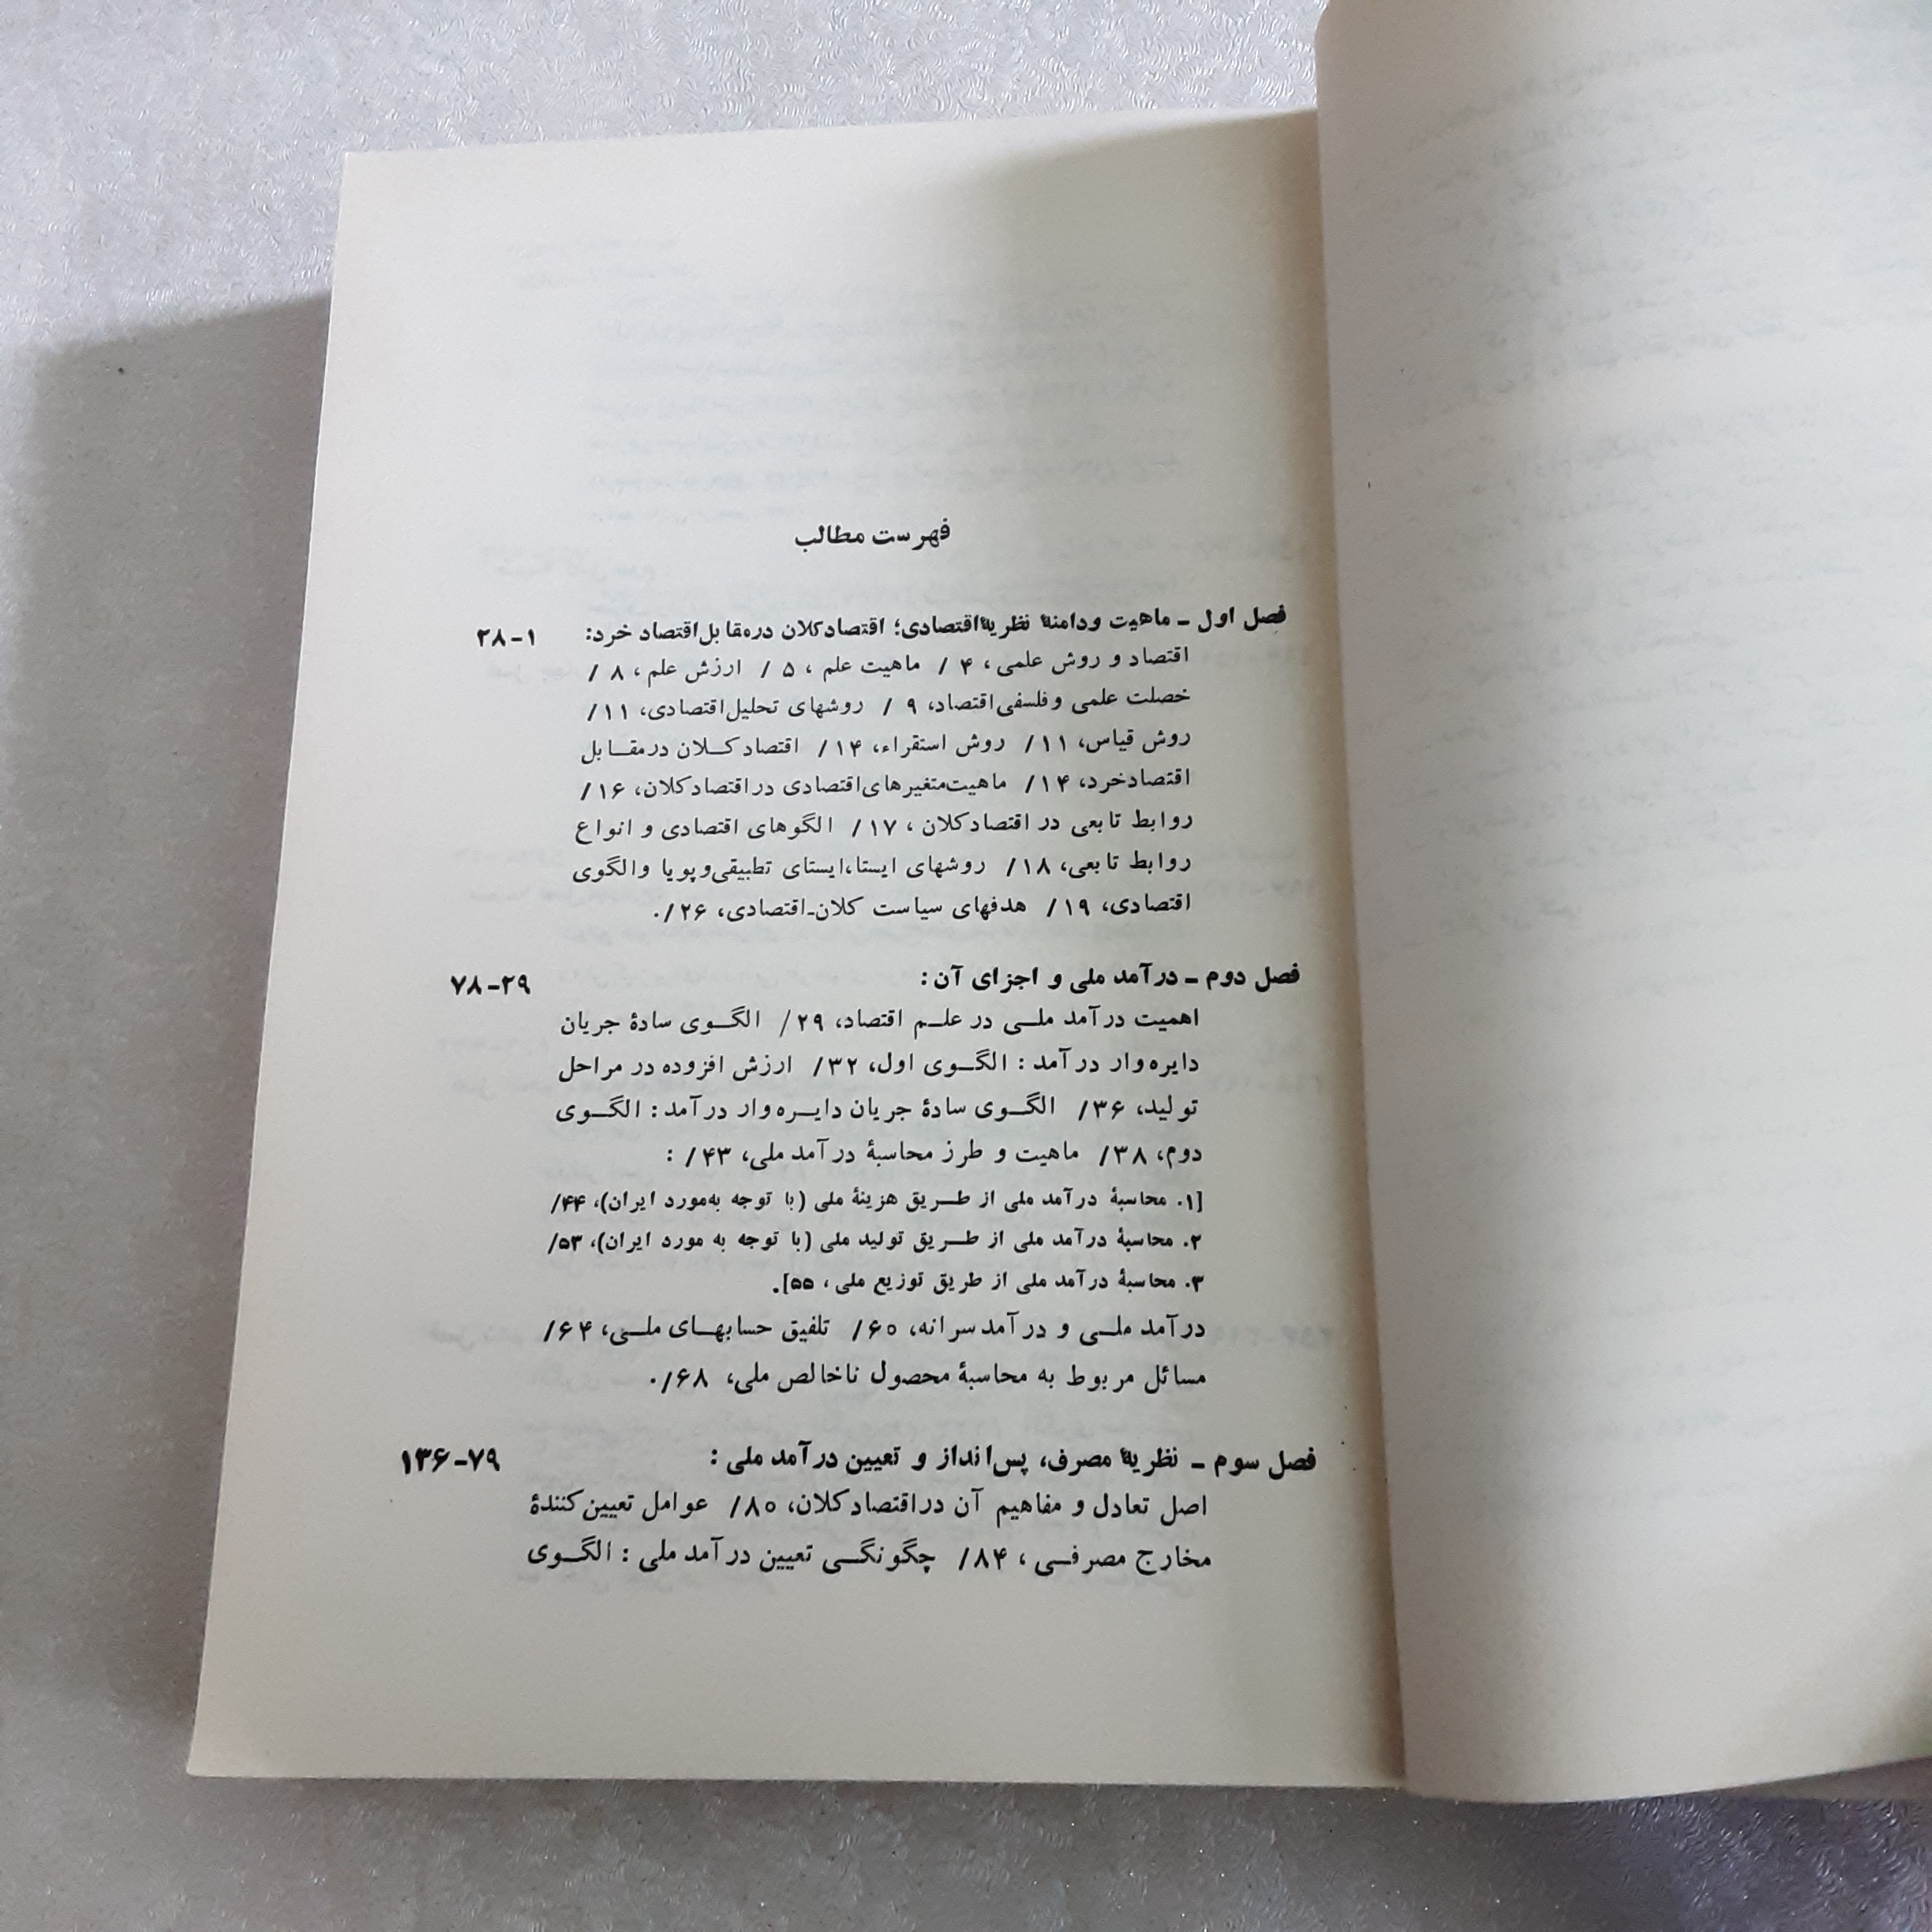 فهرست مطالب
فصل اول ـ ماهیت ودامنهٔ نظریهٔ اقتصادی؛ اقتصادکلان درمقابل اقتصاد خرد: ۱-۲۸
اقتصاد و روش علمی، ۴ / ماهیت علم، ۵ / ارزش علم، ۸ /
خصلت علمی وفلسفی اقتصاد، ۹ / روشهای تحلیل اقتصادی، ۱۱/
روش قیاس، ۱۱/ روش استقراء، ۱۴/ اقتصاد کـلان درمقـابل
اقتصادخرد، ۱۴/ ماهیت متغیرهای اقتصادی دراقتصادکلان، ۱۶/
روابط تابعی در اقتصادکلان، ۱۷/ الگوهای اقتصادی و انواع
روابط تابعی، ۱۸/ روشهای ایستا، ایستای تطبیقی و پویا والگوی
اقتصادی، ۱۹/ هدفهای سیاست کلان-اقتصادی، ۲۶/.
فصل دوم ـ درآمد ملی و اجزای آن: ۲۹-۷۸
اهمیت درآمد ملـی در علـم اقتصاد، ۲۹/ الگـوی سادهٔ جریان
دایره‌وار درآمد: الگـوی اول، ۳۲/ ارزش افزوده در مراحل
تولید، ۳۶/ الگـوی سادهٔ جریان دایـره‌وار درآمد: الگـوی
دوم، ۳۸/ ماهیت و طرز محاسبهٔ درآمد ملی، ۴۳/ :
[۱. محاسبهٔ درآمد ملی از طـریق هزینهٔ ملی (با توجه به‌مورد ایران)، ۴۴/
۲. محاسبهٔ درآمد ملی از طـریق تولید ملی (با توجه به مورد ایران)، ۵۳/
۳. محاسبهٔ درآمد ملی از طریق توزیع ملی، ۵۵].
درآمد ملـی و درآمد سرانه، ۶۰/ تلفیق حسابهـای ملـی، ۶۴/
مسائل مربوط به محاسبهٔ محصول ناخالص ملی، ۶۸/.
فصل سوم ـ نظریهٔ مصرف، پس‌انداز و تعیین درآمد ملی: ۷۹-۱۳۶
اصل تعادل و مفاهیم آن دراقتصادکلان، ۸۰/ عوامل تعیین‌کنندهٔ
مخارج مصرفـی، ۸۴/ چگونگـی تعیین درآمد ملی: الگـوی